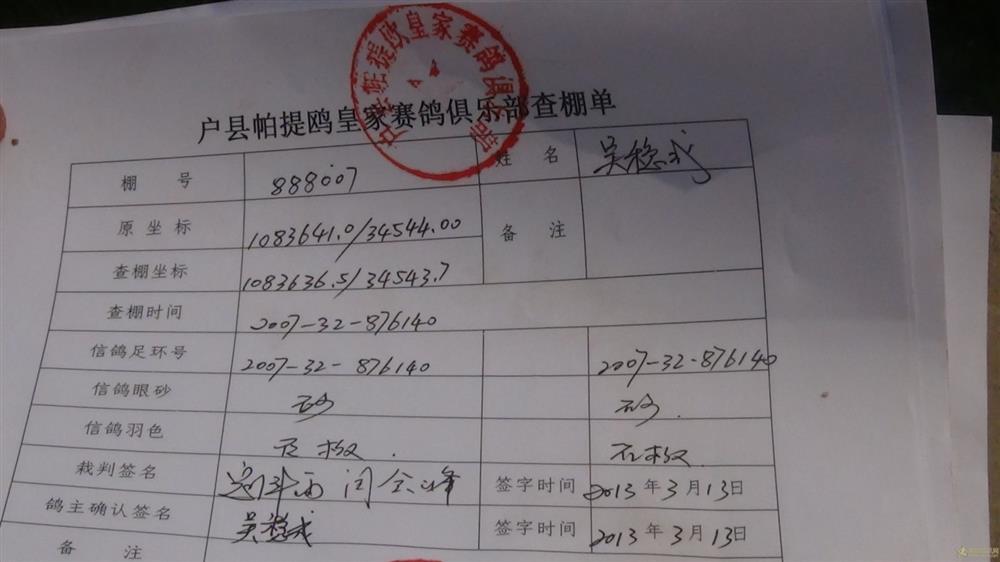 户县帕提欧皇家赛鸽俱乐部
户县帕提鸥皇家赛鸽俱乐部查棚单
棚 号 888007 姓 名 吴稳成
原坐标 1083641.0/34544.00 备 注
查棚坐标 1083636.5/34543.7
查棚时间 2007-32-876140
信鸽足环号 2007-32-876140 2007-32-876140
信鸽眼砂 砂 砂.
信鸽羽色 石板 石板.
裁判签名 签字时间 2013年3月13日
鸽主确认签名 吴稳成 签字时间 2013年3月13日
备 注